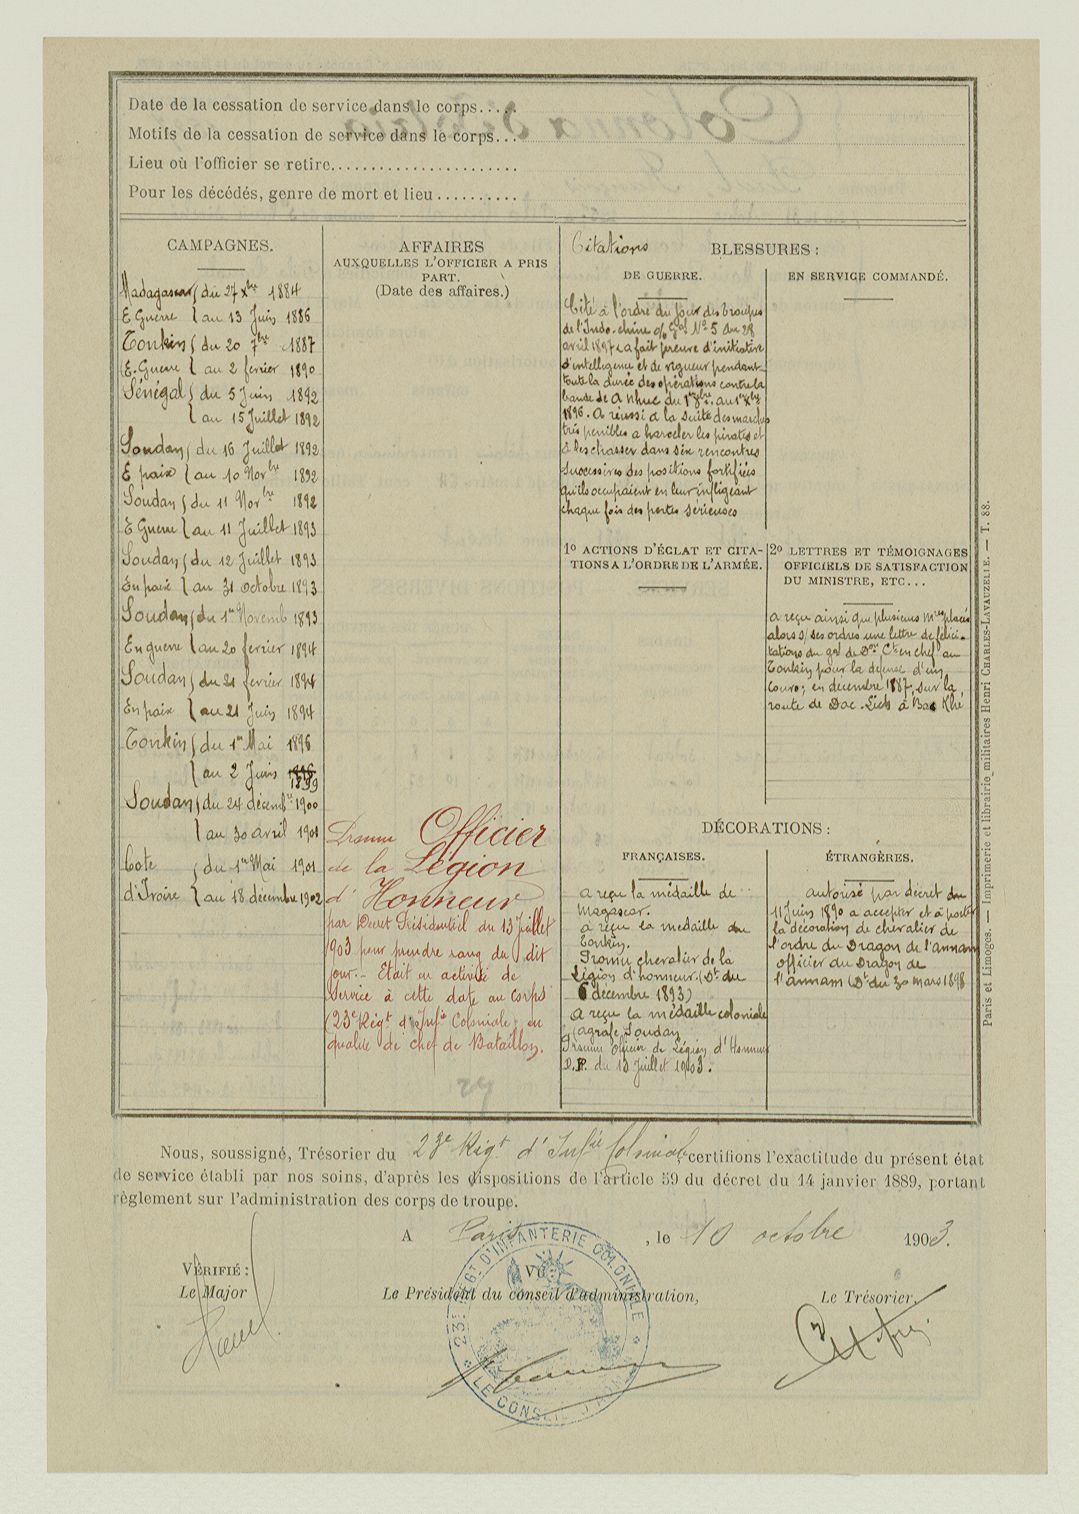 Date de la cessation de service dans le corps.....
Motifs de la cessation de service dans le corps...
Lieu où l'officier se retire.......................
Pour les décédés, genre de mort et lieu..........
CAMPAGNES.
Madagascar du 27 Xbre 1884
E Guerre au 13 Juin 1886
Tonkin du 20 7bre 1887
E. Guerre au 2 fevrier 1890
Sénégal du 5 Juin 1892
au 15 Juillet 1892
Soudan du 16 Juillet 1892
E paix au 10 Novbre 1892
Soudan du 11 Novbre 1892
E Guerre au 11 Juillet 1893
Soudan du 12 Juillet 1893
En paix au 31 octobre 1893
Soudan du 1er Novemb 1893
En guerre au 20 fevrier 1894
Soudan du 21 fevrier 1894
En paix au 21 Juin 1894
Tonkin du 1er Mai 1896
au 2 Juin 1896
1899
Soudan du 24 décembre 1900
au 30 avril 1901
Cote du 1er Mai 1901
d'Ivoire au 18 décembre 1902
AFFAIRES
AUXQUELLES L'OFFICIER A PRIS
PART.
(Date des affaires.)
Promu Officier
de la Légion
d'Honneur
par Décret Présidentiel du 13 Juillet
1903 pour prendre rang du dit
jour.- Etait en activité de
Service à cette date au Corps
(23e Régt d'Infie Coloniale) en
qualité de chef de Bataillon.
29
Citations BLESSURES :
DE GUERRE.
Cité à l'ordre du jour des troupes
de l'Indo-chine Gal No 5 du 28
avril 1897 a fait preuve d'initiative
d'intelligence et de vigueur pendant
toute la durée des opérations contre la
bande de A Nhuc du 1er 9bre au 1er Xbre
1896. A réussi à la suite des marches
très penibles a harceler les pirates et
à les chasser dans six rencontres
successives des positions fortifiées
qu'ils occupaient en leur infligeant
chaque fois des pertes sérieuses
EN SERVICE COMMANDÉ.
1o ACTIONS D'ÉCLAT ET CITA-
TIONS A L'ORDRE DE L'ARMÉE.
2o LETTRES ET TÉMOIGNAGES
OFFICIELS DE SATISFACTION
DU MINISTRE, ETC...
a reçu ainsi que plusieurs mres placés
alors s/ ses ordres une lettre de félici-
tations du gal de Don Ct en chef au
Tonkin pour la defense d'un
convoi en décembre 1887, sur la
route de Dac-Lich à Bac Khé
DÉCORATIONS :
FRANÇAISES.
a reçu la médaille de
Magascar.
a reçu la medaille du
Tonkin.
Promu chevalier de la
Légion d'honneur. (Dt du
6 décembre 1893)
a reçu la médaille coloniale
(agrafe Soudan
Promu Officier de Légion d'Honneur
D.P. du 13 Juillet 1903.
ÉTRANGÈRES.
autorisé par décret du
11 Juin 1890 a accepter et à porter
la décoration de chevalier de
l'ordre du Dragon de l'annam
officier du Dragon de
l'annam (Dt du 30 mars 1898
Paris et Limoges. — Imprimerie et librairie militaires Henri CHARLES-LAVAUZELLE. — T. 88.
Nous, soussigné, Trésorier du 23e Régt d'Infie Coloniale, certifions l'exactitude du présent état
de service établi par nos soins, d'après les dispositions de l'article 59 du décret du 14 janvier 1889, portant
règlement sur l'administration des corps de troupe.
A Paris, le 10 octobre 1903.
VÉRIFIÉ :
Le Major
VU :
Le Président du conseil d'administration,
Le Trésorier,
23e RÉGt D'INFANTERIE COLONIALE
LE CONSEIL D'